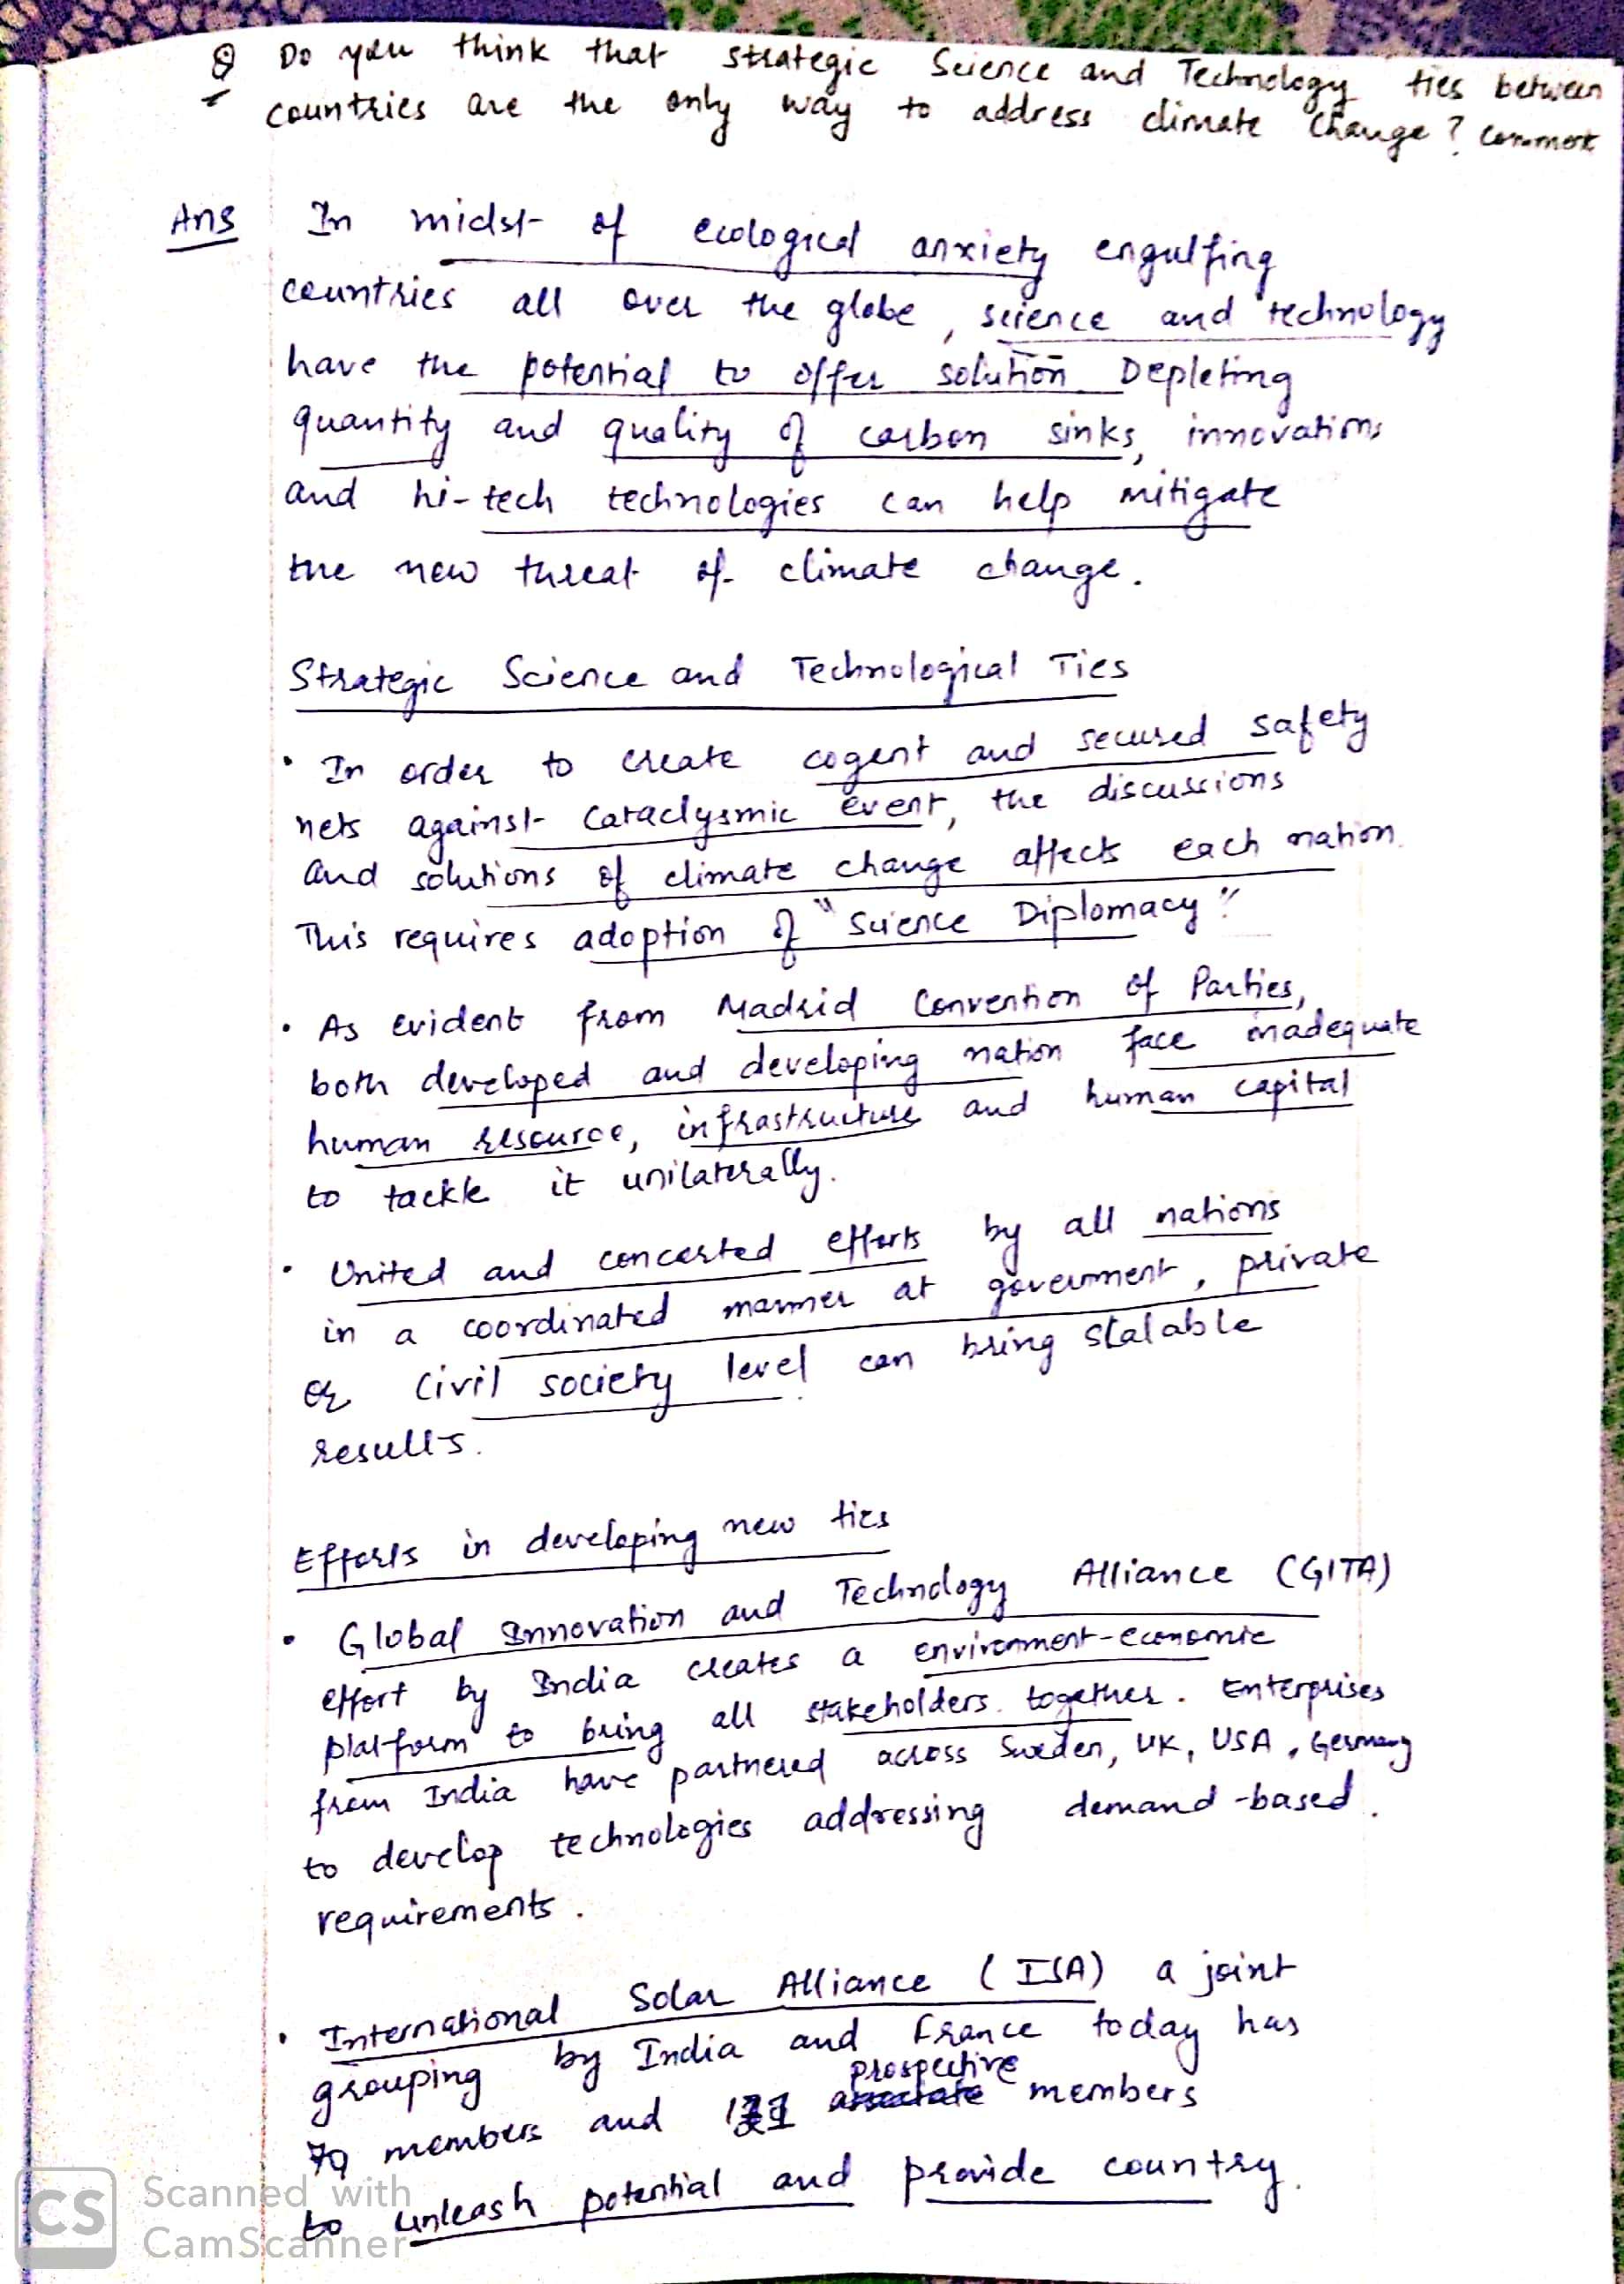 Q Do you think that strategic Science and Technology ties between
countries are the only way to address climate change? Comment
Ans In midst of ecological anxiety engulfing
countries all over the globe, science and technology
have the potential to offer solution Depleting
quantity and quality of carbon sinks, innovations
and hi-tech technologies can help mitigate
the new threat of climate change.
Strategic Science and Technological Ties
• In order to create cogent and secured safety
nets against cataclysmic event, the discussions
and solutions of climate change affects each nation.
This requires adoption of "Science Diplomacy"
• As evident from Madrid Convention of Parties,
both developed and developing nation face inadequate
human resource, infrastructure and human capital
to tackle it unilaterally.
• United and concerted efforts by all nations
in a coordinated manner at government, private
or civil society level can bring stalable
results.
Efforts in developing new ties
• Global Innovation and Technology Alliance (GITA)
effort by India creates a environment-economic
platform to bring all stakeholders together. Enterprises
from India have partnered across Sweden, UK, USA, Germany
to develop technologies addressing demand-based.
requirements.
• International Solar Alliance (ISA) a joint
grouping by India and France today has
prospective
79 members and associate members
to unleash potential and provide country.
CS Scanned with
CamScanner